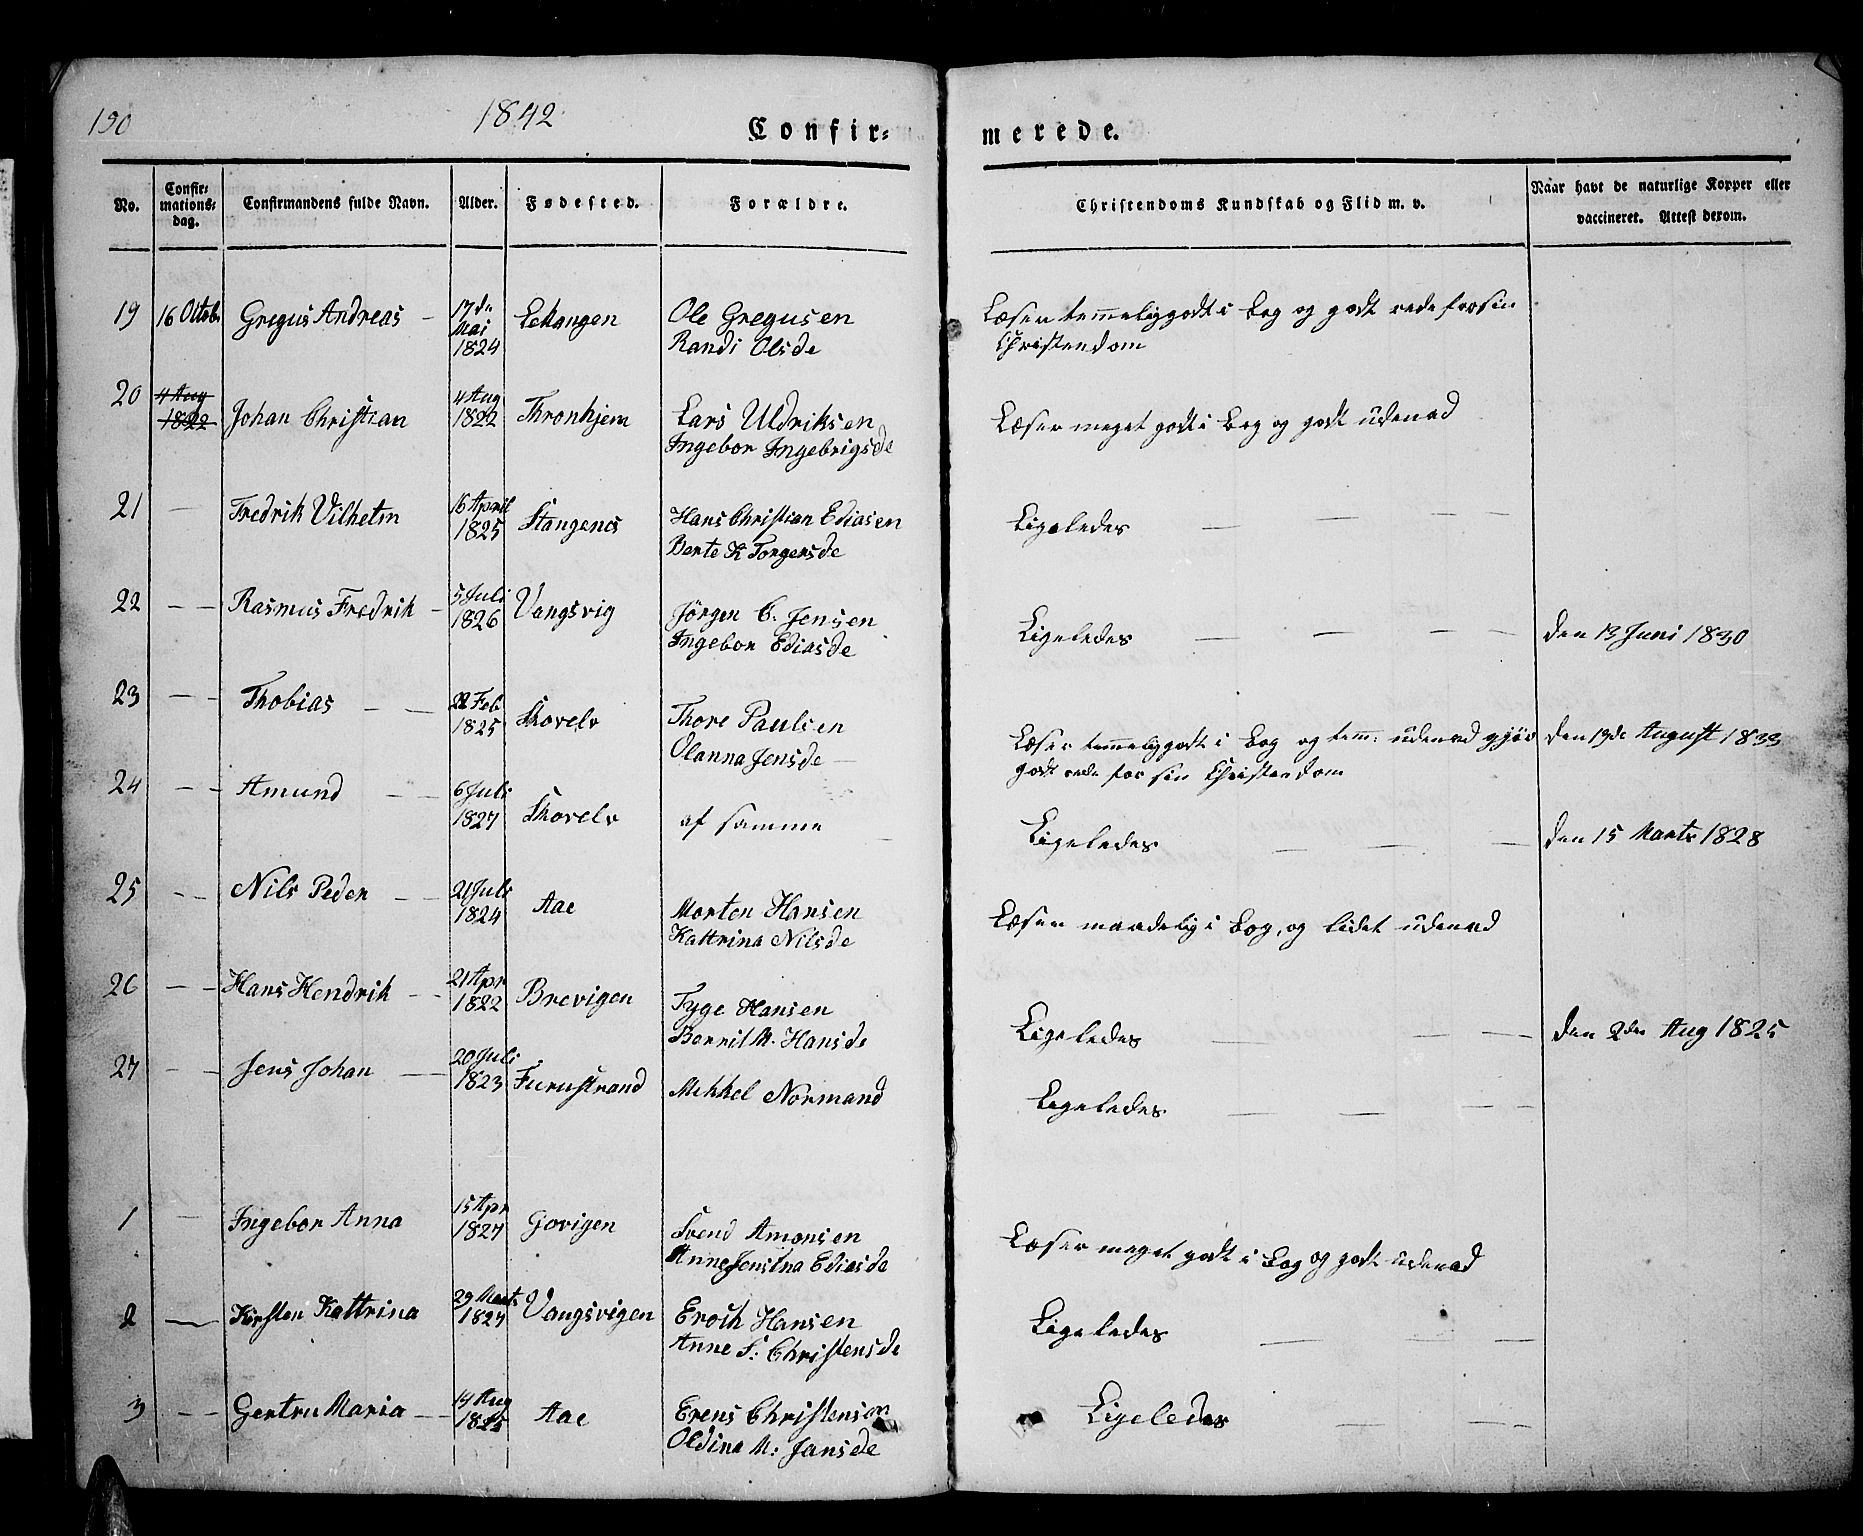 190
1842
Confir=
merede.
No.
Confir=
mations=
dag.
Confirmandens fulde Navn.
Alder.
Fødested.
Forældre.
Christendoms Kundskab og Flid m. v.
Naar havt de naturlige Kopper eller
vaccineret. Attest derom.
19 16 Octob. Gregus Andreas – 17de Lekangen Ole Gregusen Læser temmeliggodt i Bog og godt rede for sin
Mai
1824 Randi Olsde Christendom
20 4 Aug 4 Aug
1822 Johan Christian 1822 Thronhjem Lars Uldriksen Læser meget godt i Bog og godt udenad
Ingebor Ingebrigsde
21 — Fredrik Vilhelm 16 April Stangenes Hans Christian Ediasen Ligeledes — — —
1825 Berte K Torgersde
22 — — Rasmus Fredrik – 5 Juli Vangsvig Jörgen C. Jensen Ligeledes — — — — den 13 Juni 1830
1826 Ingebor Ediasde
23 — — Thobias — — 22 Feb Skovelv Thore Paulsen Læser temmeliggodt i Bog og tem: udenad gjör den 13de August 1833
1825 Olanna Jensde — godt rede for sin Christendom
24 — — Amund — — 6 Juli Skovelv af samme — Ligeledes — — — den 15 Marts 1828
1827
25 — — Nils Peder — — 21 Juli Aae Morten Hansen Læser maadelig i Bog, og lidet udenad
1824 Kattrina Nilsde
26 — — Hans Hendrik — — 21 Apr Brevigen Tyge Hansen Ligeledes — — — den 2den Aug 1825
1822 Borril M. Hansde
27 — — Jens Johan — — 20 Juli Furustrand Mikkel Normand Ligeledes — — — —
1823
1 — Ingebor Anna 15 Apr Govigen Svend Amonsen Læser meget godt i Bog og godt udenad
1827 Anne Jensina Ediasde
2 — Kirsten Kattrina 29 Marts Vangsvigen Erock Hansen Ligeledes — — —
1827 Anne S: Christensde
3 — — Gertru Maria — — 14 Aug Aae Erens Christensen Ligeledes — — —
1825 Oldina M: Jansde